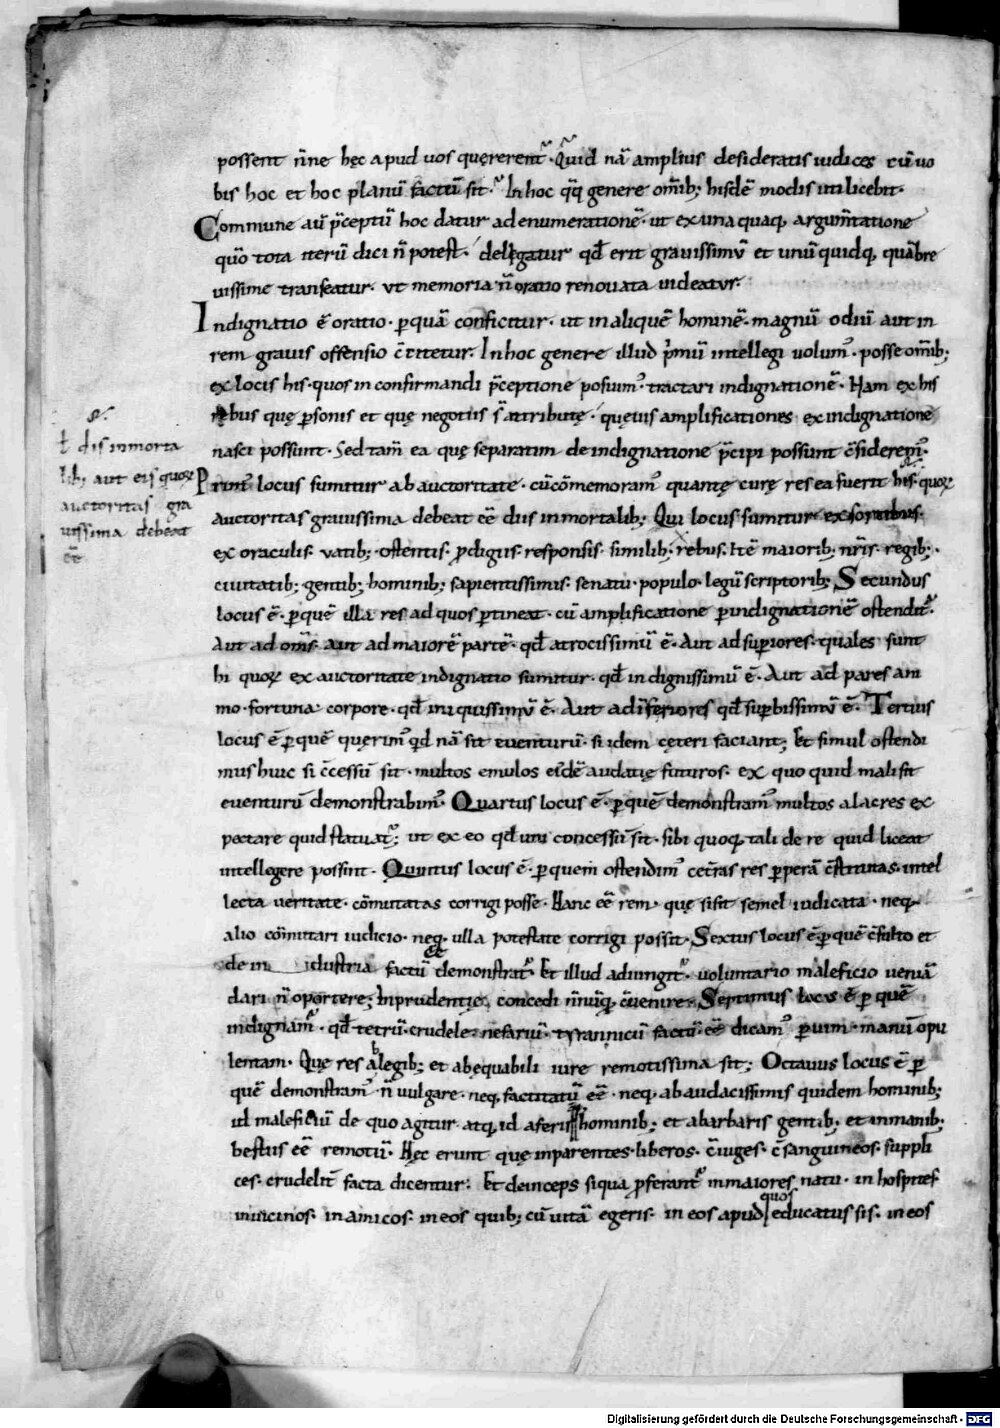 possent n̄ne hęc apud uos quęrerent᷑. Quid nā amplius desideratis iudices cū uo
bis hoc et hoc planū factū sit. In hoc qq̄ genere om̄ib; hisdē modis uti licebit.
Commune aū p̄ceptū hoc datur ad enumerationē. ut ex una quaq, argum̄tatione
quō tota iterū dici n̄ potest. delegatur qđ erit grauissimū et unū quidq, quā bre
uissime transeatur. ut memoria n̄ oratio renouata uideatur.
Indignatio ē oratio. p̱ quā conficitur. ut in aliquē hominē. magnū odiū aut in
rem grauis offensio c̄titetur. In hoc genere illud p̄mū intellegi uolum᾿. posse om̄ib;
ex locis his. quos in confirmandi p̄ceptione posium᾿. tractari indignationē. Nam ex his
rebus quę p̱sonis et quę negotiis s̄ attributę. quęuis amplificationes ex indignatione
nasci possunt. Sed tam̄ ea quę separatim de indignatione p̄cipi possunt c̄siderem᾿.
Primus locus sumitur ab auctoritate. cū cōmemoram᾿ quantę curę res ea fuerit his. quoꝝ
auctoritas grauissima debeat eē diis inmortalib; Qui locus sumitur ex sortibus.
ex oraculis. vatib; ostentis. p̱digiis. responsis. similib; rebus. Itē maiorib; nr̄is. regib;.
ciuitatib; gentib; hominib; sapientissimis. senatu. populo. legū scriptorib; Secundus
locus ē. p̱ quē illa res ad quos p̱tineat. cū amplificatione p̱ indignationē ostendit᷑.
Aut ad om̄s. aut ad maiorē partē. qđ atrocissimū ē. Aut ad sup̱iores. quales sunt
hi quoꝝ ex auctoritate indignatio sumitur. qđ indignissimū ē. Aut ad pares ani
mo. fortuna. corpore. qđ iniquissimū ē. Aut ad inferiores qđ sup̱bissimū ē. Tertius
locus ē p̱ quē quęrim᾿ qd nā sit euenturū. si idem cęteri faciant; Et simul ostendi
mus huic si c̄cessū sit. multos emulos eiusdē audatię futuros. ex quo quid mali sit
euenturū demonstrabim᾿. Quartus locus ē. p̱ quē demonstram᾿ multos alacres ex
pectare quid statuat᷑; ut ex eo qđ uni concessū sit. sibi quoq, tali de re quid liceat
intellegere possint. Quintus locus ē. p̱ quem ostendim᾿ cet̄as res p̱perā c̄stitutas. intel
lecta ueritate. cōmutatas corrigi posse. Hanc eē rem. quę si sit semel iudicata. neq,
alio cōmutari iudicio. neq, ulla potestate corrigi possit. Sextus locus ē p̱ quē c̄sulto et
de in dustria factū eē demonstrat᷑. Et illud adiungit᷑. uoluntario maleficio ueniā
dari n̄ oportere; Inprudentię concedi n̄nūq, c̄uenire. Septimus locus ē p̱ quē
indignam᾿. qđ tetrū. crudele. nefariū. tyrannicū factū eē dicam᾿ p̱ uim. manū opu
lentam. Quę res ab legib; et ab ęquabili iure remotissima sit; Octauus locus ē p̱
quē demonstram᾿. n̄ uulgare. neq, factitatū eē. neq, ab audacissimis quidem hominib;
id maleficiū de quo agitur. atq, id a feris hominib; et a barbaris gentib; et inmanib;
bestiis eē remotū. Hęc erunt quę in parentes. liberos. c̄iuges. c̄sanguineos. suppli
ces. crudelit̄ facta dicentur. Et deinceps siqua p̱ferant᷑ in maiores natu. in hospites.
in uicinos. in amicos. in eos quib; cū uitā egeris. in eos apud quos educatus sis. in eos
ł dis inmorta
lib; aut eis quoꝝ
auctoritas gra
uissima debeat
eē
Digitalisierung gefördert durch die Deutsche Forschungsgemeinschaft - DFG